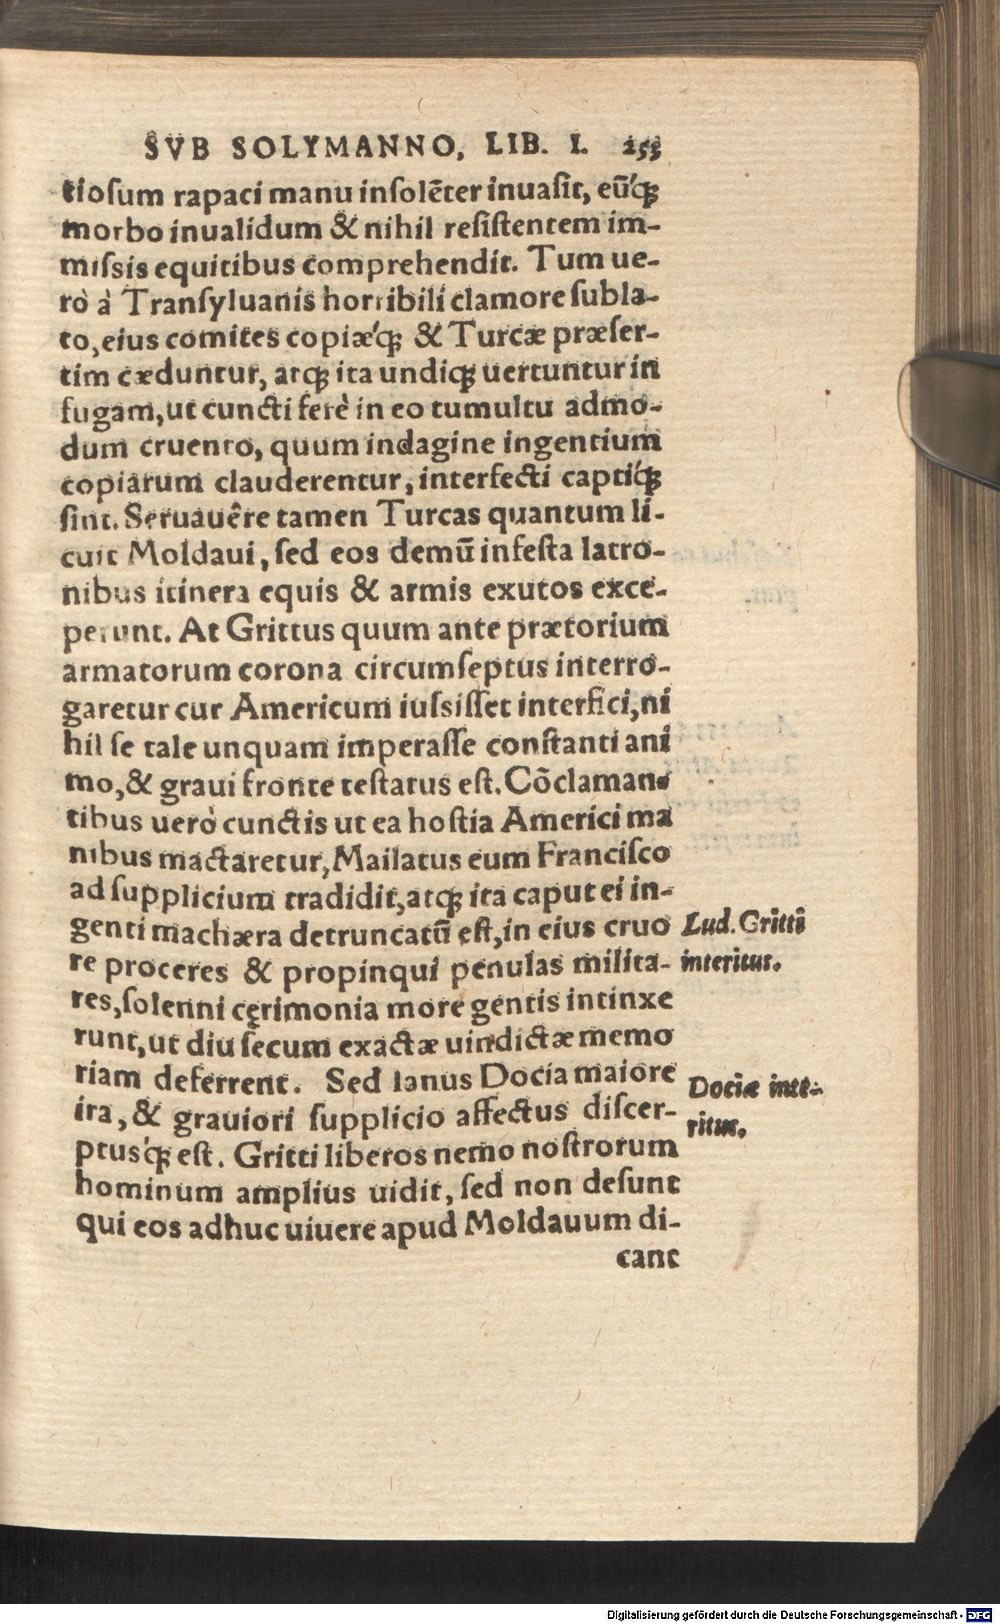 SVB SOLYMANNO, LIB. I. 253
tiosum rapaci manu insolēter inuasit, eū́q;
morbo inualidum & nihil resistentem im-
missis equitibus comprehendit. Tum ue-
rò à Transyluanis horribili clamore subla-
to, eius comites copiǽq; & Turcæ præser-
tim cæduntur, atq; ita undiq; uertuntur in
fugam, ut cuncti ferè in eo tumultu admo-
dum cruento, quum indagine ingentium
copiarum clauderentur, interfecti captíq;
sint. Seruauêre tamen Turcas quantum li-
cuit Moldaui, sed eos demū infesta latro-
nibus itinera equis & armis exutos exce-
perunt. At Grittus quum ante prætorium
armatorum corona circumseptus interro-
garetur cur Americum iussisset interfici, ni
hil se tale unquam imperasse constanti ani
mo, & graui fronte testatus est. Cōclaman-
tibus uerò cunctis ut ea hostia Americi ma
nibus mactaretur, Mailatus eum Francisco
ad supplicium tradidit, atq; ita caput ei in-
genti machæra detruncatū est, in eius cruo
Lud. Gritti
re proceres & propinqui penulas milita-
interitus.
res, solenni cęrimonia more gentis intinxe
runt, ut diu secum exactæ uindictæ memo
riam deferrent. Sed Ianus Docia maiore
Dociæ inte-
ira, & grauiori supplicio affectus discer-
ritus.
ptuśq; est. Gritti liberos nemo nostrorum
hominum amplius uidit, sed non desunt
qui eos adhuc uiuere apud Moldauum di-
cant
Digitalisierung gefördert durch die Deutsche Forschungsgemeinschaft - DFG